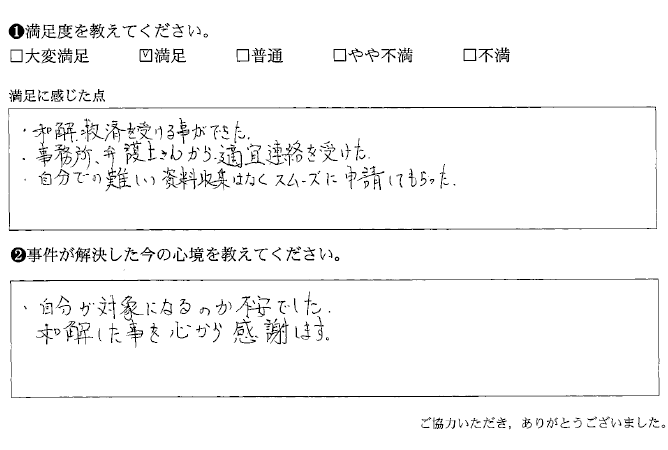 ❶満足度を教えてください。
□大変満足 ☑満足 □普通 □やや不満 □不満
満足に感じた点
・和解、救済を受ける事ができた。
・事務所、弁護士さんから適宜連絡を受けた。
・自分での難しい資料収集はなくスムーズに申請してもらった。
❷事件が解決した今の心境を教えてください。
・自分が対象になるのか不安でした。
和解した事を心から感謝します。
ご協力いただき，ありがとうございました。